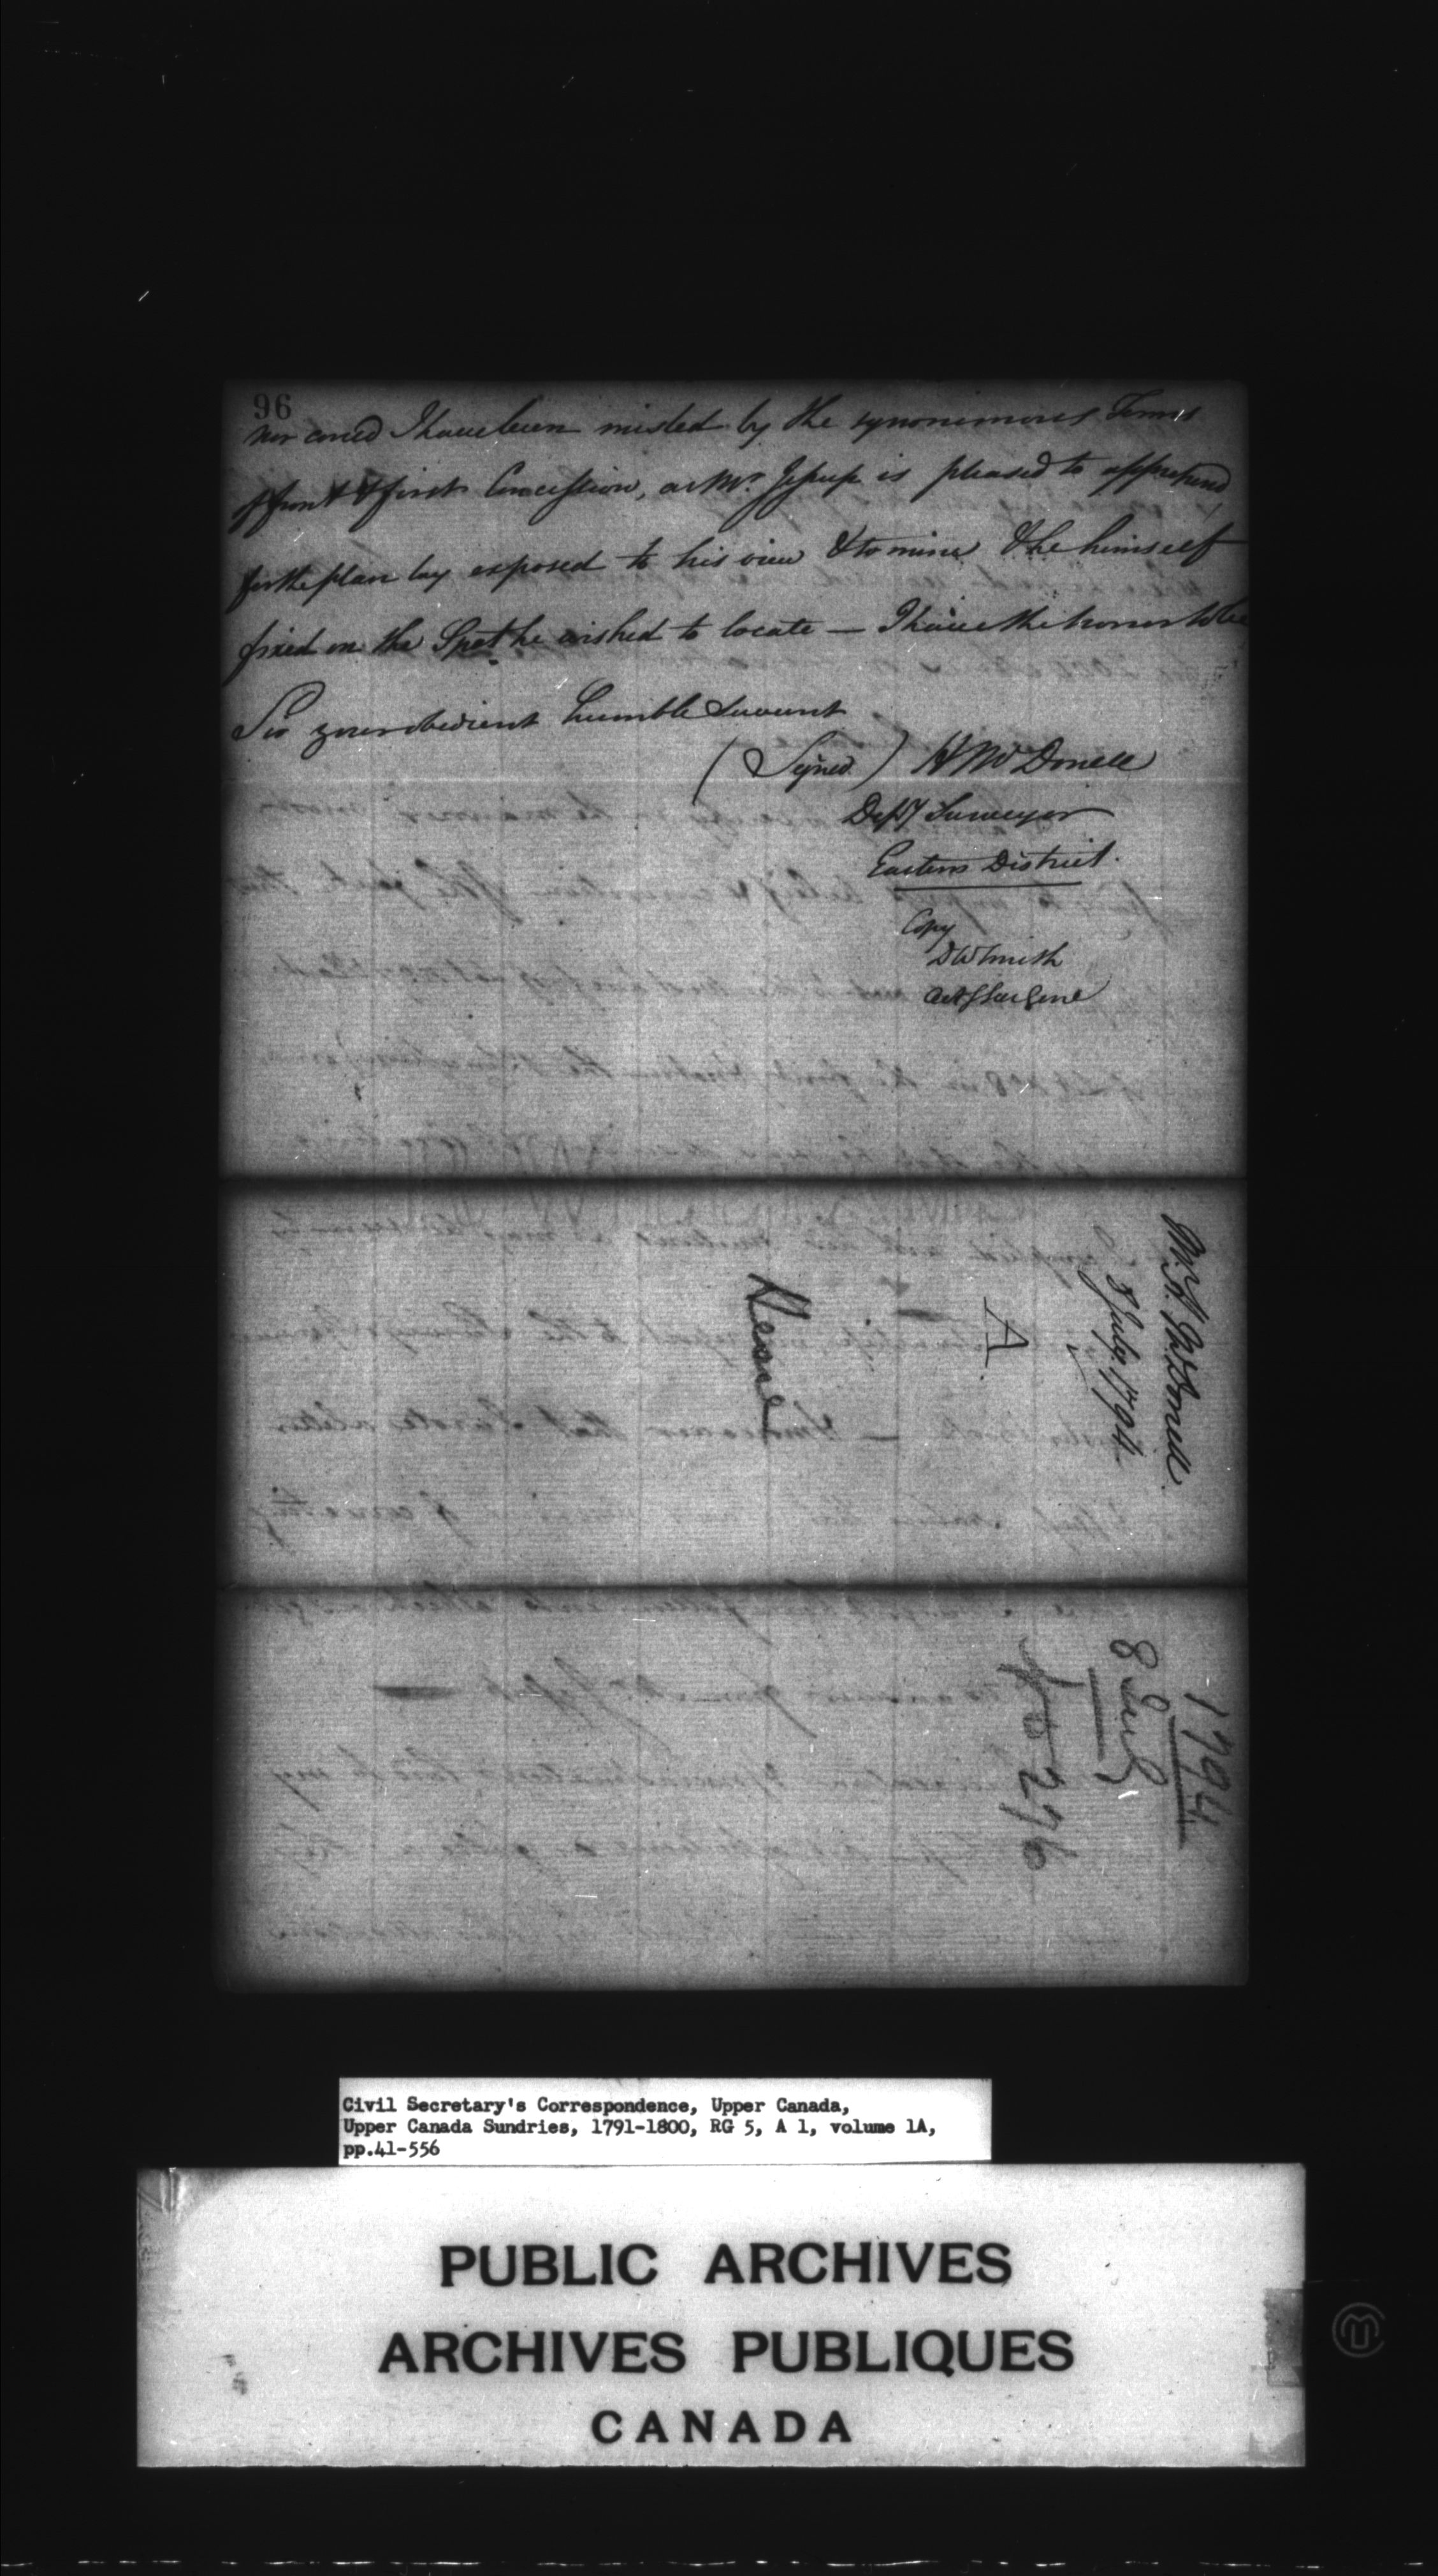 96
nor coued I have been misled by the synonimoues Terms
of front & first Concession, as Mr. Jessup is pleased to apprehend
for the plan lay exposed to his view & to mine & he himself
fixed on the Spot he wished to locate — I have the honor to be
Sir your obedient humble Servant
(Signed) H McDonell
Depy Surveyor
Eastern District.
Copy
DWSmith
Actg Sur Genl
Mr. H. McDonell
8 July 1794
A
1794
8 July
No 276
Civil Secretary's Correspondence, Upper Canada,
Upper Canada Sundries, 1791-1800, RG 5, A 1, volume 1A,
pp.41-556
PUBLIC ARCHIVES
ARCHIVES PUBLIQUES
CANADA